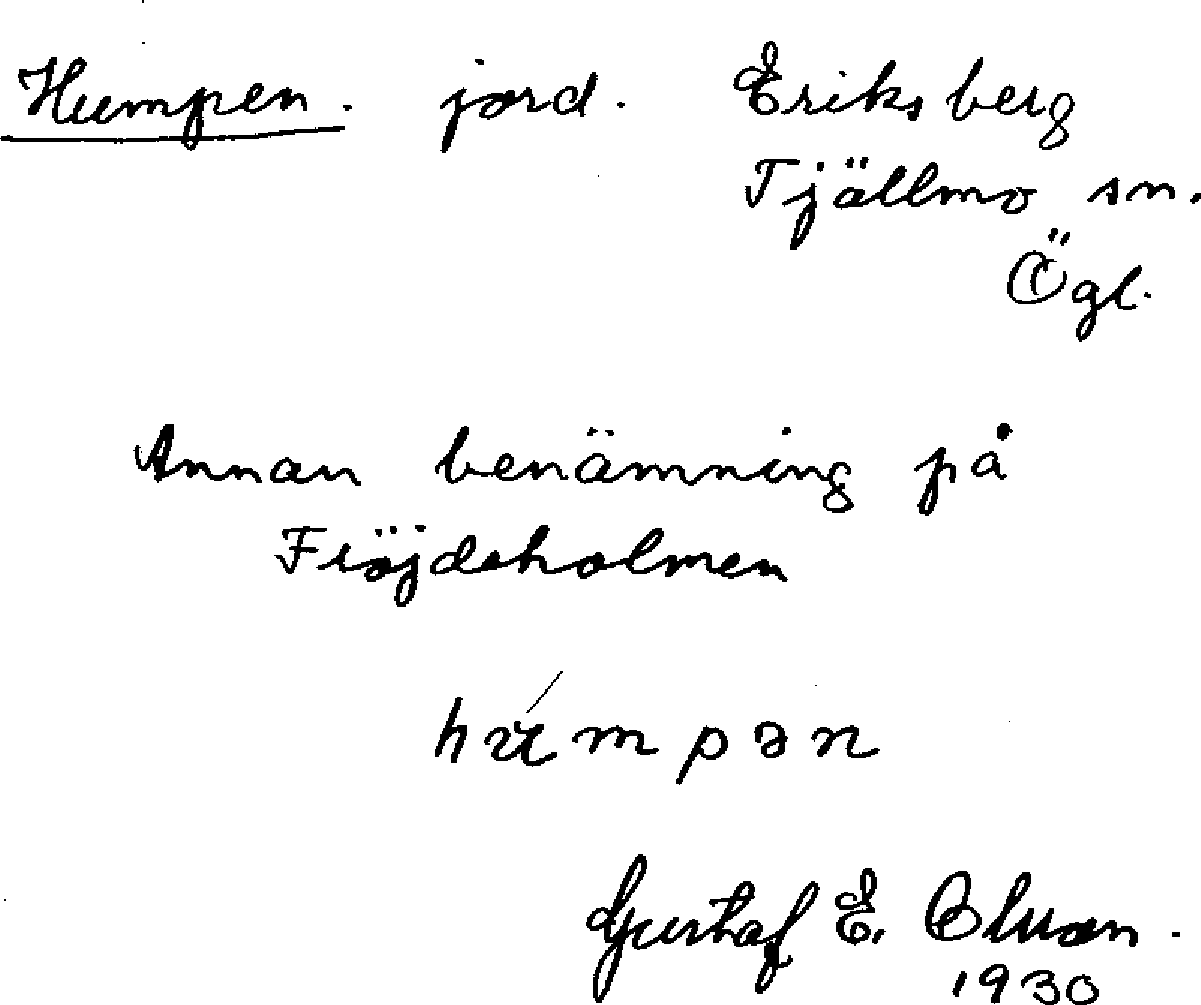 Humpen. jord. Eriksberg
Tjällmo sn.
Ögl.
Annan benämning på
Fröjdsholmen
húmpən
Gustaf E.
1930